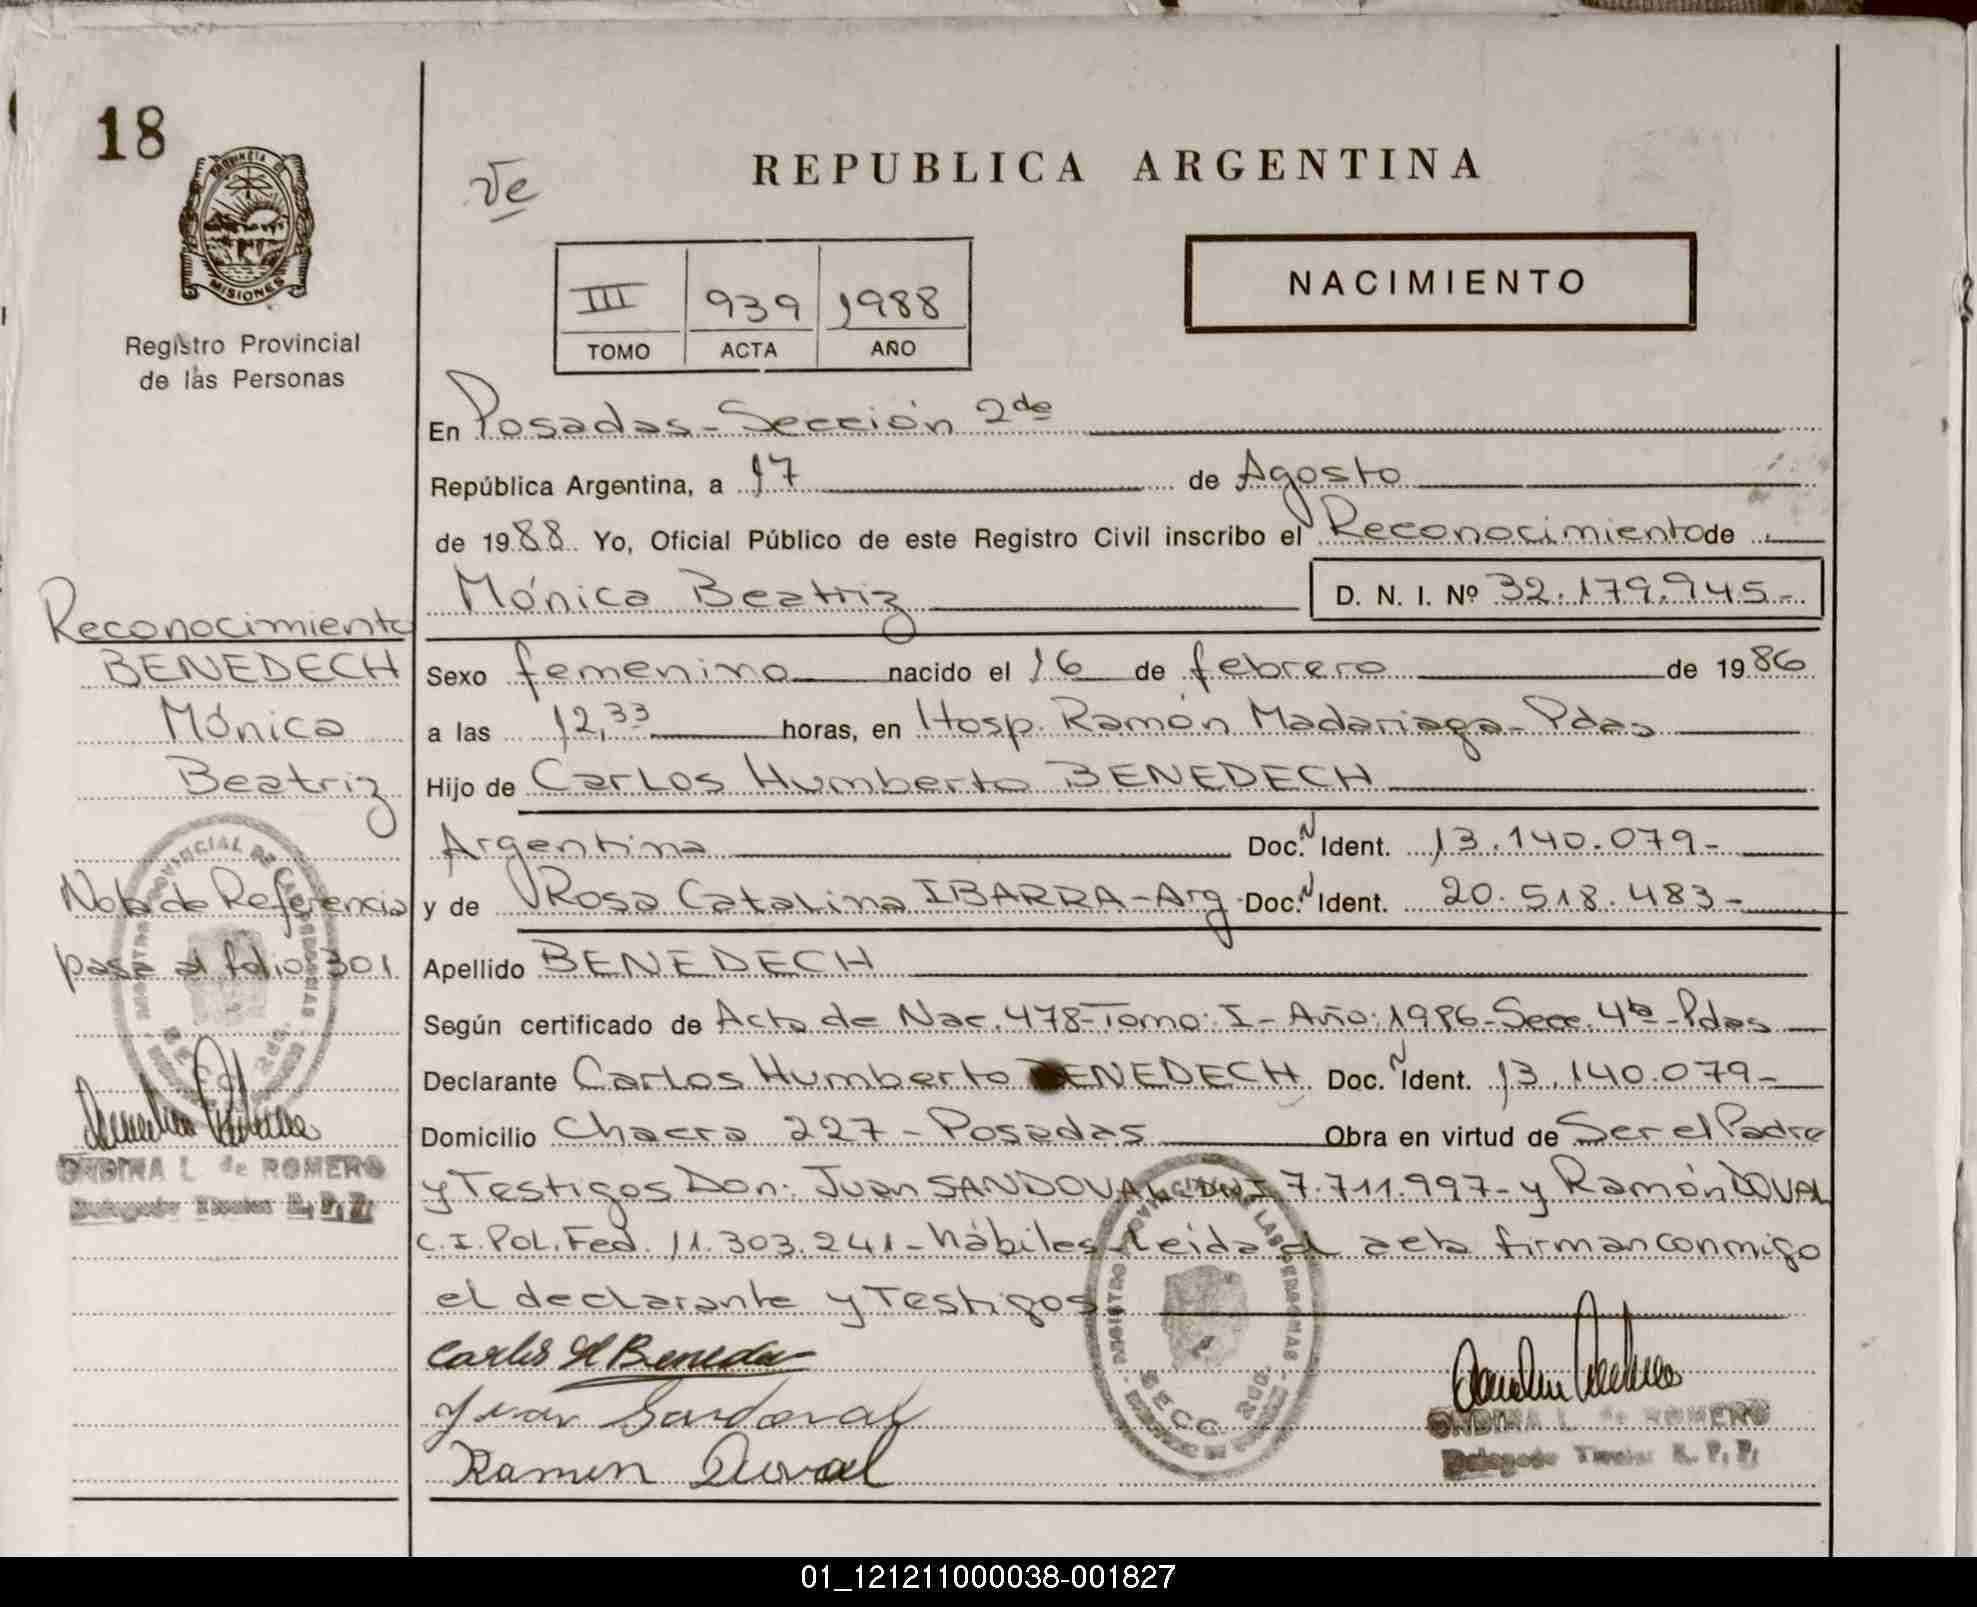 18
PROVINCIA DE
MISIONES
Registro Provincial
de las Personas
Ve
REPUBLICA ARGENTINA
III 939 1988
TOMO ACTA AÑO
NACIMIENTO
En Posadas - Sección 2da
República Argentina, a 17 de Agosto
de 1988. Yo, Oficial Público de este Registro Civil inscribo el Reconocimiento de
Mónica Beatriz D. N. I. Nº 32.179.945-
Sexo femenino nacido el 16 de febrero de 1986
a las 12,33 horas, en Hosp. Ramón Madariaga - Pdas
Hijo de Carlos Humberto BENEDECH
Argentina Doc. N Ident. 13.140.079-
y de Rosa Catalina IBARRA - Arg. Doc. N Ident. 20.518.483-
Apellido BENEDECH
Según certificado de Acta de Nac. 478 - Tomo: I - Año: 1986 - Secc. 4ta - Pdas
Declarante Carlos Humberto BENEDECH Doc. N Ident. 13.140.079-
Domicilio Chacra 227 - Posadas Obra en virtud de Ser el Padre
y Testigos Don: Juan SANDOVAL DNI 7.711.997 - y Ramón DOVAL
C.I. Pol. Fed. 11.303.241 - hábiles - Leida el acta firman conmigo
el declarante y Testigos
Carlos H Benedech
Juan Sandoval
Ramon Duval
ONDINA L. de ROMERO
Delegado Titular R. P. P.
Reconocimiento
BENEDECH
Mónica
Beatriz
Nota de Referencia
pasa al folio 301
ONDINA L. de ROMERO
Delegado Titular R. P. P.
REGISTRO PROVINCIAL DE LAS PERSONAS
SECC. 2da.
01_121211000038-001827